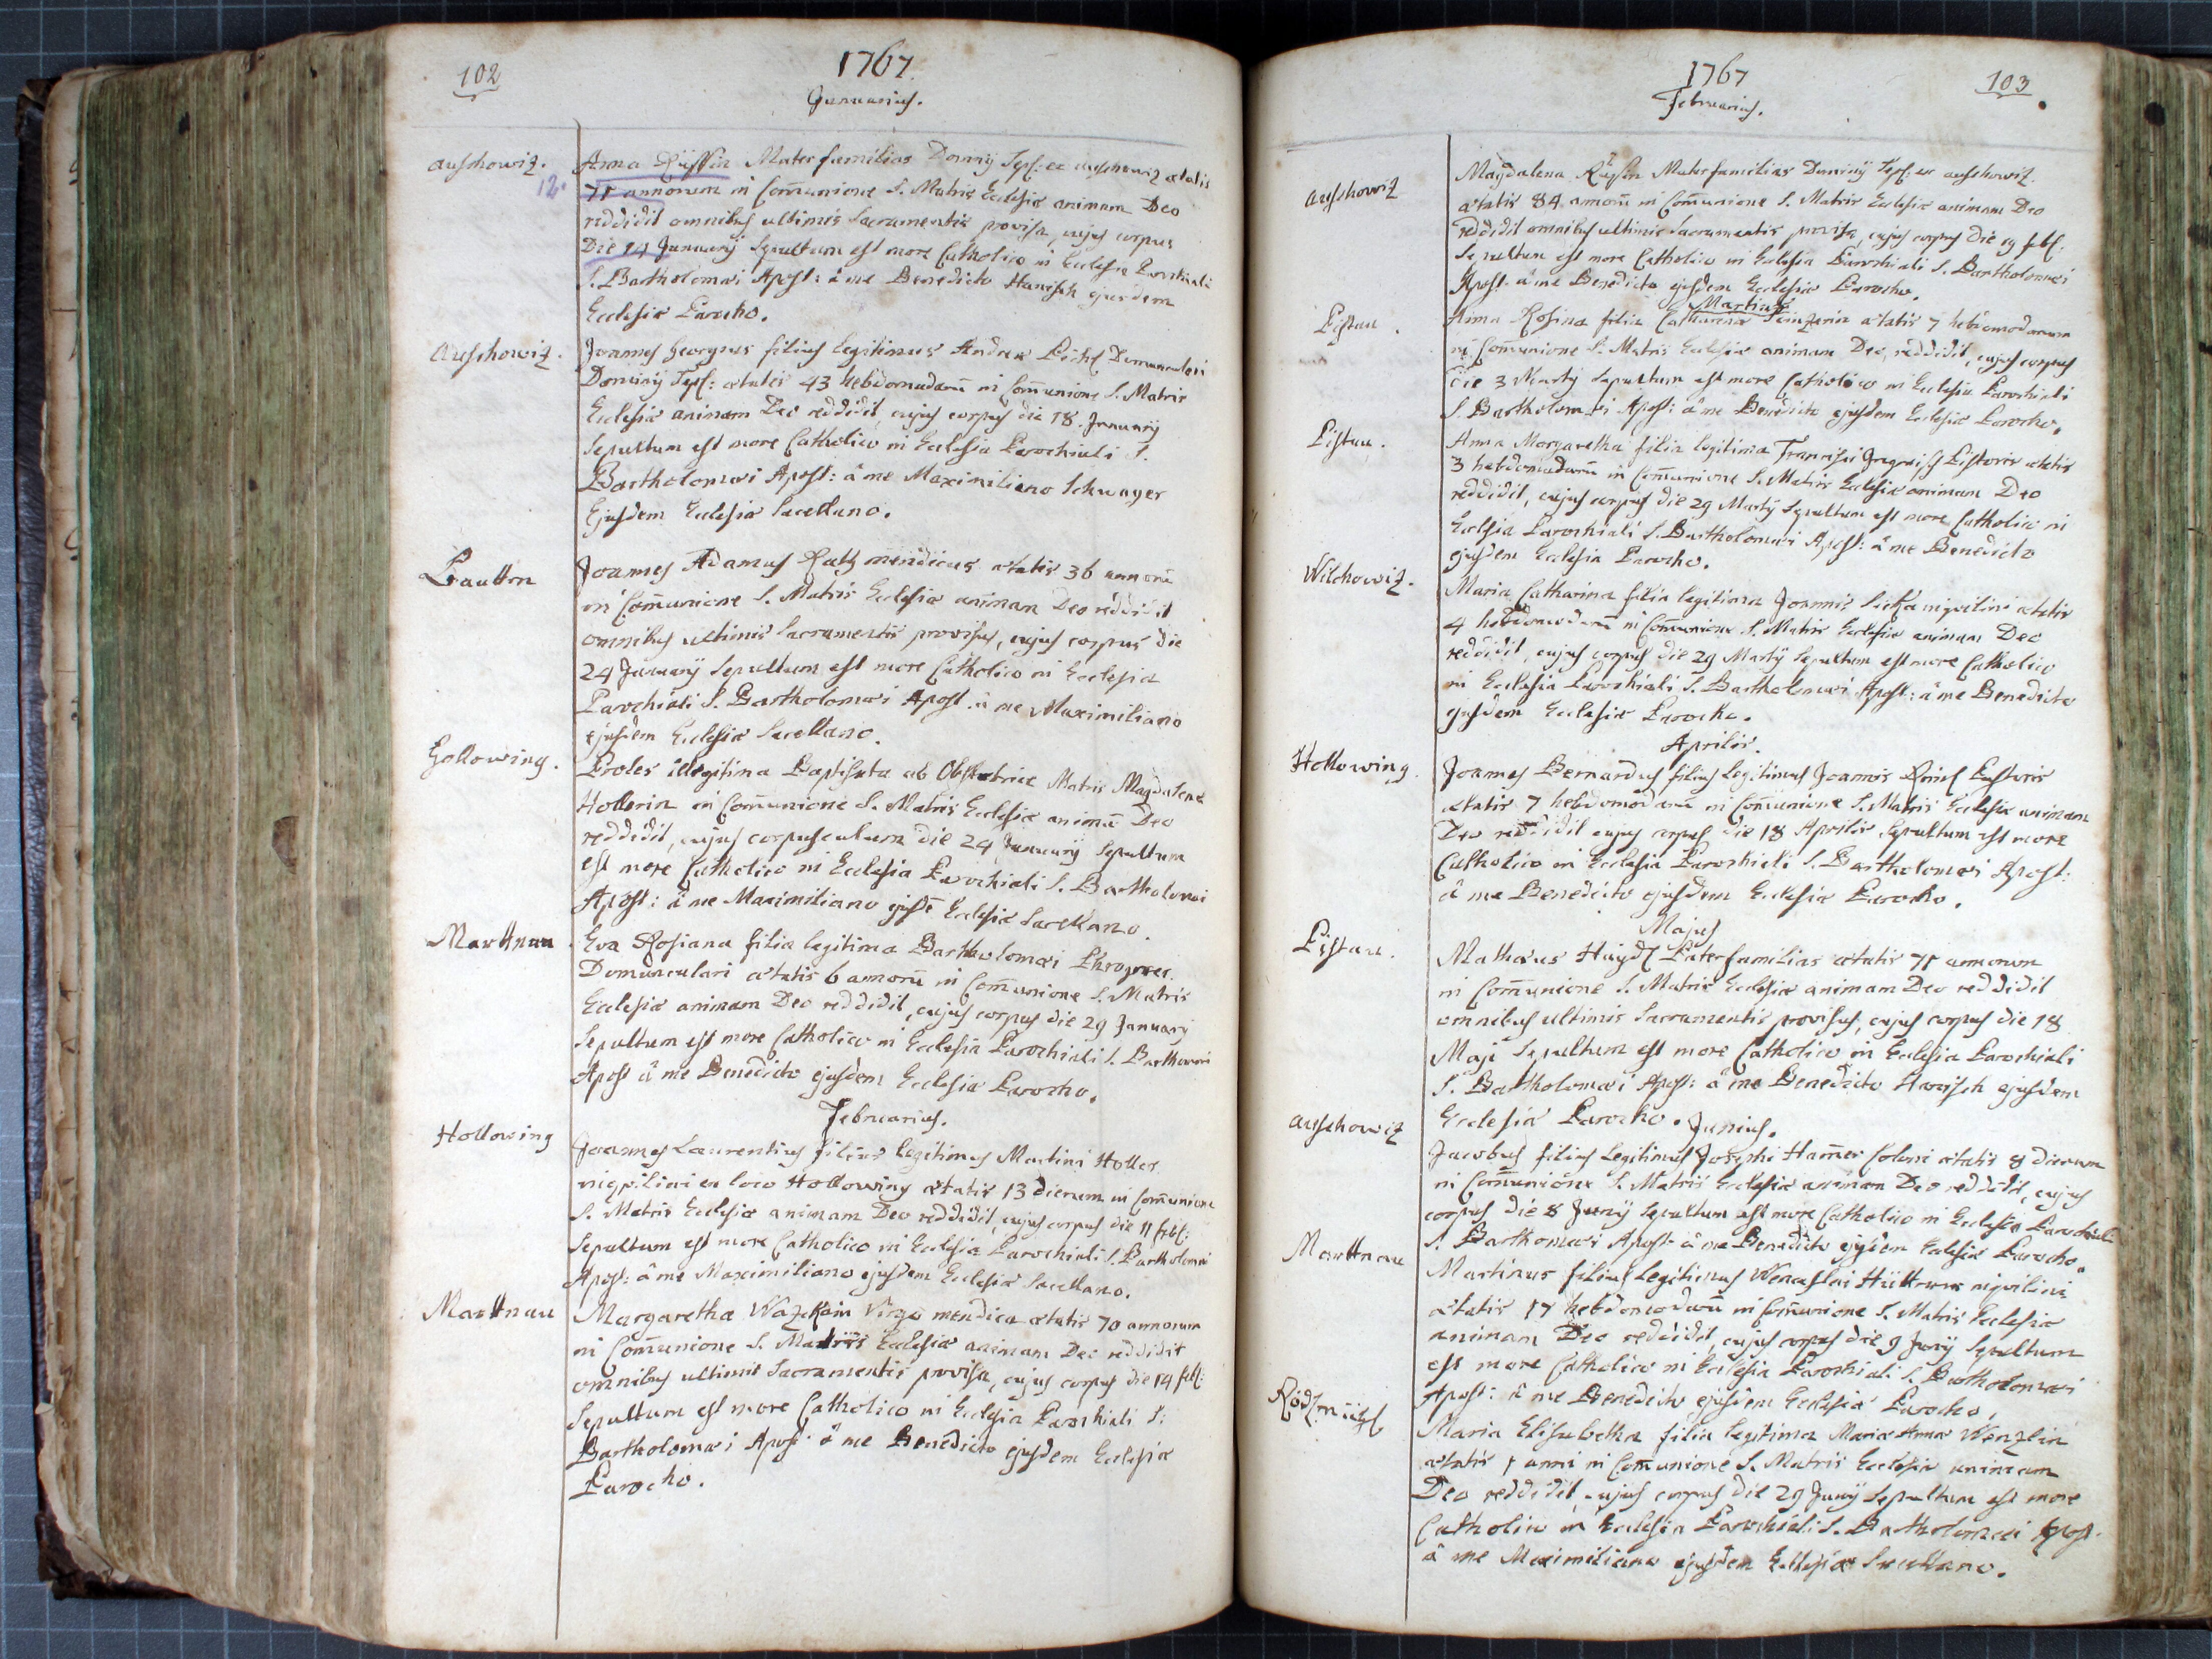 102
1767.
Januarius.
Auschowiz.
12.
Anna Mater familias Dominÿ Tepl: ex Auschowiz ætatis
71 annorum in Com̄unione S. Matris Ecclesiæ animam Deo
reddidit omnibus ultimis Sacramentis provisa, cujus corpus
Die 14 Januarÿ Sepultum est more Catholico in Ecclesia Parochiali
S. Bartholomæi Apost: à me Benedicto Hanisch ejusdem
Ecclesiæ Parocho.
Auschowiz.
Joannes Georgius filius legitimus Andreæ Domuncularii
Dominÿ Tepl: ætatis 43 hebdomadarū in Com̄unione S. Matris
Ecclesiæ animam Deo reddidit, cujus corpus die 18. Januarÿ
Sepultum est more Catholico in Ecclesia Parochiali S.
Bartholomæi Apost: à me Maximiliano Schwager
Ejusdem Ecclesiæ Sacellano.
Joannes Adamus mendicus ætatis 36 annorū
in Com̄unione S. Matris Ecclesiæ animam Deo reddidit
omnibus ultimis Sacramentis provisus, cujus corpus die
24 Januarÿ Sepultum est more Catholico in Ecclesia
Parochiali S. Bartholomæi Apost. à me Maximiliano
ejusdem Ecclesiæ Sacellano.
Gollowing.
Proles illegitima Baptisata ab Obstetrice Matris Magdalenæ
Hollerin in Com̄unione S. Matris Ecclesiæ animā Deo
reddidit, cujus corpusculum die 24 Januarÿ Sepultum
est more Catholico in Ecclesia Parochiali S. Bartholomæi
Apost: à me Maximiliano ejusdē Ecclesiæ Sacellano.
Marttnau
Eva Rosiana filia legitima Bartholomæi
Domunculari ætatis 6 annorū in Com̄unione S. Matris
Ecclesiæ animam Deo reddidit, cujus corpus die 29 Januarÿ
Sepultum est more Catholico in Ecclesia Parochiali S. Bartholomæi
Apost à me Benedicto ejusdem Ecclesiæ Parocho.
Februarius.
Hollowing
Joannes Laurentius filius legitimus Martini Holler
inquilini ex loco Hollowing ætatis 13 dierum in Com̄unione
S. Matris Ecclesiæ animam Deo reddidit, cujus corpus die 11 feb:
Sepultum est more Catholico in Ecclesia Parochiali S. Bartholomæi
Apost: à me Maximiliano ejusdem Ecclesiæ Sacellano.
Marttnau
Margaretha Virgo mendica ætatis 70 annorum
in Com̄unione S. Matris Ecclesiæ animam Deo reddidit
omnibus ultimis Sacramentis provisa, cujus corpus die 14 feb:
Sepultum est more Catholico in Ecclesia Parochiali S:
Bartholomæi Apost: à me Benedicto ejusdem Ecclesiæ
Parocho.
1767
Februarius.
103
Auschowiz
Magdalena Mater familias Dominÿ Tepl: ex Auschowiz.
ætatis 84 annorū in Com̄unione S. Matris Ecclesiæ animam Deo
reddidit omnibus ultimis Sacramentis provisa, cujus corpus die 19 feb:
Sepultum est more Catholico in Ecclesia Parochiali S. Bartholomæi
Apost. à me Benedicto ejusdem Ecclesiæ Parocho.
Martius
Pistau.
Anna Rosina filia Catharinæ ætatis 7 hebdomodarum
in Com̄unione S. Matris Ecclesiæ animam Deo reddidit, cujus corpus
die 3 Martÿ Sepultum est more Catholico in Ecclesia Parochiali
S. Bartholomæi Apost: à me Benedicto ejusdem Ecclesiæ Parocho.
Pistau.
Anna Margaretha filia legitima Francisci Pistoris ætatis
3 hebdomadarū in Com̄unione S. Matris Ecclesiæ animam Deo
reddidit, cujus corpus die 29 Martÿ Sepultum est more Catholico in
Ecclesia Parochiali S. Bartholomæi Apost: à me Benedicto
ejusdem Ecclesiæ Parocho.
Wilchowiz.
Maria Catharina filia legitima Joannis inquilini ætatis
4 hebdomodarū in Com̄unione S. Matris Ecclesiæ animam Deo
reddidit, cujus corpus die 29 Martÿ Sepultum est more Catholico
in Ecclesia Parochiali S. Bartholomæi Apost: à me Benedicto
ejusdem Ecclesiæ Parocho.
Aprilis.
Hollowing.
Joannes Bernardus filius legitimus Joannis Pastoris
ætatis 7 hebdomodarū in Com̄unione S. Matris Ecclesiæ animam
Deo reddidit cujus corpus die 18 Aprilis Sepultum est more
Catholico in Ecclesia Parochiali S. Bartholomæi Apost:
à me Benedicto ejusdem Ecclesiæ Parocho.
Majus
Pistau.
Mathæus Paterfamilias ætatis 71 annorum
in Com̄unione S. Matris Ecclesiæ animam Deo reddidit
omnibus ultimis Sacramentis provisus, cujus corpus die 18
Maji Sepultum est more Catholico in Ecclesia Parochiali
S. Bartholomæi Apost: à me Benedicto Hanisch ejusdem
Ecclesiæ Parocho. Junius.
Auschowiz
Jacobus filius legitimus Josephi Ham̄er Coloni ætatis 8 dierum
in Com̄unione S. Matris Ecclesiæ animam Deo reddidit, cujus
corpus die 8 Junÿ Sepultum est more Catholico in Ecclesia Parochiali
S. Bartholomæi Apost. à me Benedicto ejusdem Ecclesiæ Parocho.
Marttnau
Martinus filius legitimus Wenceslai inquilini
ætatis 17 hebdomodarū in Com̄unione S. Matris Ecclesiæ
animam Deo reddidit, cujus corpus die 9 Junÿ Sepultum
est more Catholico in Ecclesia Parochiali S. Bartholomæi
Apost: à me Benedicto ejusdem Ecclesiæ Parocho.
Maria Elisabetha filia legitima Mariæ Annæ Wenzlin
ætatis 1 anni in Com̄unione S. Matris Ecclesiæ animam
Deo reddidit, cujus corpus die 29 Junÿ Sepultum est more
Catholico in Ecclesia Parochiali S. Bartholomæi Apost.
à me Maximiliano ejusdem Ecclesiæ Sacellano.